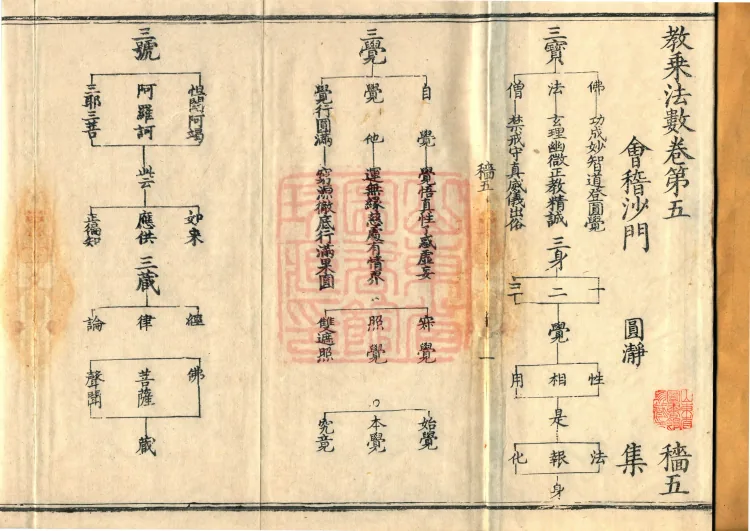 教乘法數卷第五
穡五
會稽沙門 圓瀞 集
三寶
佛 功成妙智道登圓覺
法 玄理幽微正教精誠
僧 禁戒守真威儀出俗
三身
一
二
三
覺
性
相
用
是
法
報
化
身
穡五
一
三覺
自覺 覺悟真性了惑虛妄
覺他 運無緣慈度有情界
覺行圓滿 窮源徹底行滿果圓
寂覺
照覺
雙遮照
始覺
本覺
究竟
三號
怛闥阿竭
阿羅訶
三耶三菩
此云
如來
應供
正徧知
三藏
經
律
論
佛
菩薩
聲聞
藏